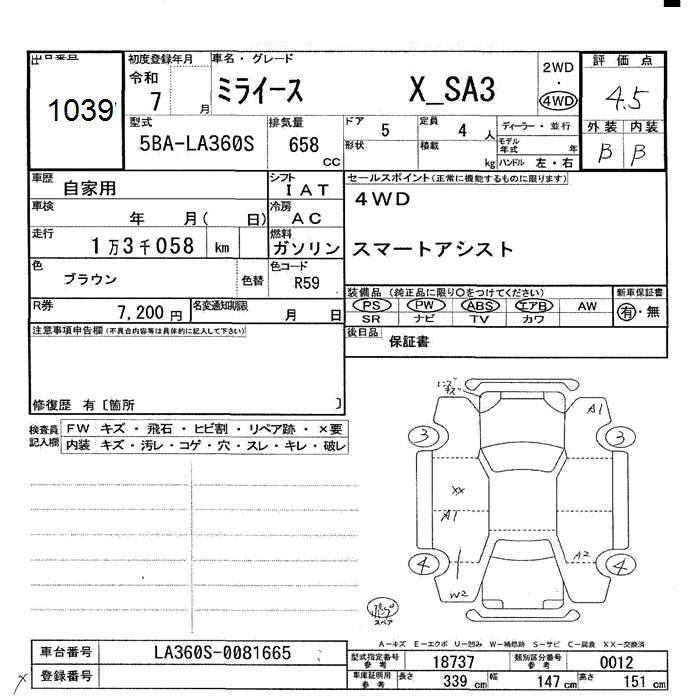 出品番号 初度登録年月 車名・グレード 2WD 評価点
令和 ミライース X_SA3 ・
1039 7 月 4WD 4.5
型式 排気量 ドア 5 定員 4 人 ディーラー・並行 外装 内装
5BA-LA360S 658 cc 形状 積載 kg モデル年式 年 B B
ハンドル 左・右
車歴 自家用 シフト IAT セールスポイント(正常に機能するものに限ります)
車検 年 月( 日) 冷房 AC 4WD
走行 1万3千058 km 燃料 ガソリン スマートアシスト
色 ブラウン 色替 色コード R59
装備品 (純正品に限り○をつけてください) 新車保証書
R券 7,200円 名変通知期限 月 日 PS PW ABS エアB AW 有・無
SR ナビ TV カワ
注意事項申告欄(不具合内容等は具体的に記入して下さい) 後日品 保証書
修復歴 有〔箇所 〕
検査員記入欄 FW キズ・飛石・ヒビ割・リペア跡・×要
内装 キズ・汚レ・コゲ・穴・スレ・キレ・破レ
A1
3 3
XX
A1
A2
4 4
W2
スペア
A-キズ E-エクボ U-凹み W-補修跡 S-サビ C-腐食 XX-交換済
車台番号 LA360S-0081665 型式指定番号 参考 18737 類別区分番号 参考 0012
登録番号 車庫証明用 参考 長さ 339 cm 幅 147 cm 高さ 151 cm